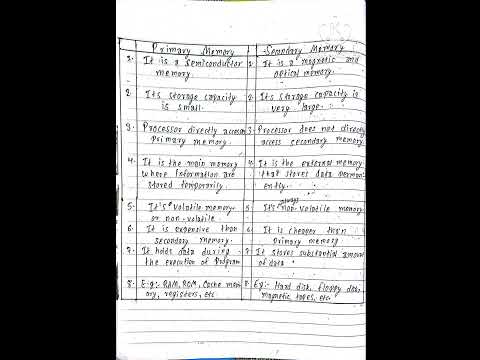 Primary Memory
Secondary Memory
1. It is a semiconductor
memory.
1. It is a magnetic and
optical memory.
2. Its storage capacity
is small.
2. Its storage capacity is
very large.
3. Processor directly access
primary memory.
3. Processor does not directly
access cecondary memory.
4. It is the main memory
where Information are
stored temporarily.
4. It is the external memory
that stores data perman-
ently.
5. It's volatile memory
or non-volatile
5. It's always non-volatile memory
6. It is expensive than
secondary memory.
6. It is cheaper than
primary memory
7. It holds data during
the execution of Program
7. It stores substantial amount
of data.
8. E.g:- RAM, ROM, Cache mem-
ory, registers, etc
8. Eg:- Hard disk, floppy disk,
magnetic tapes, etc